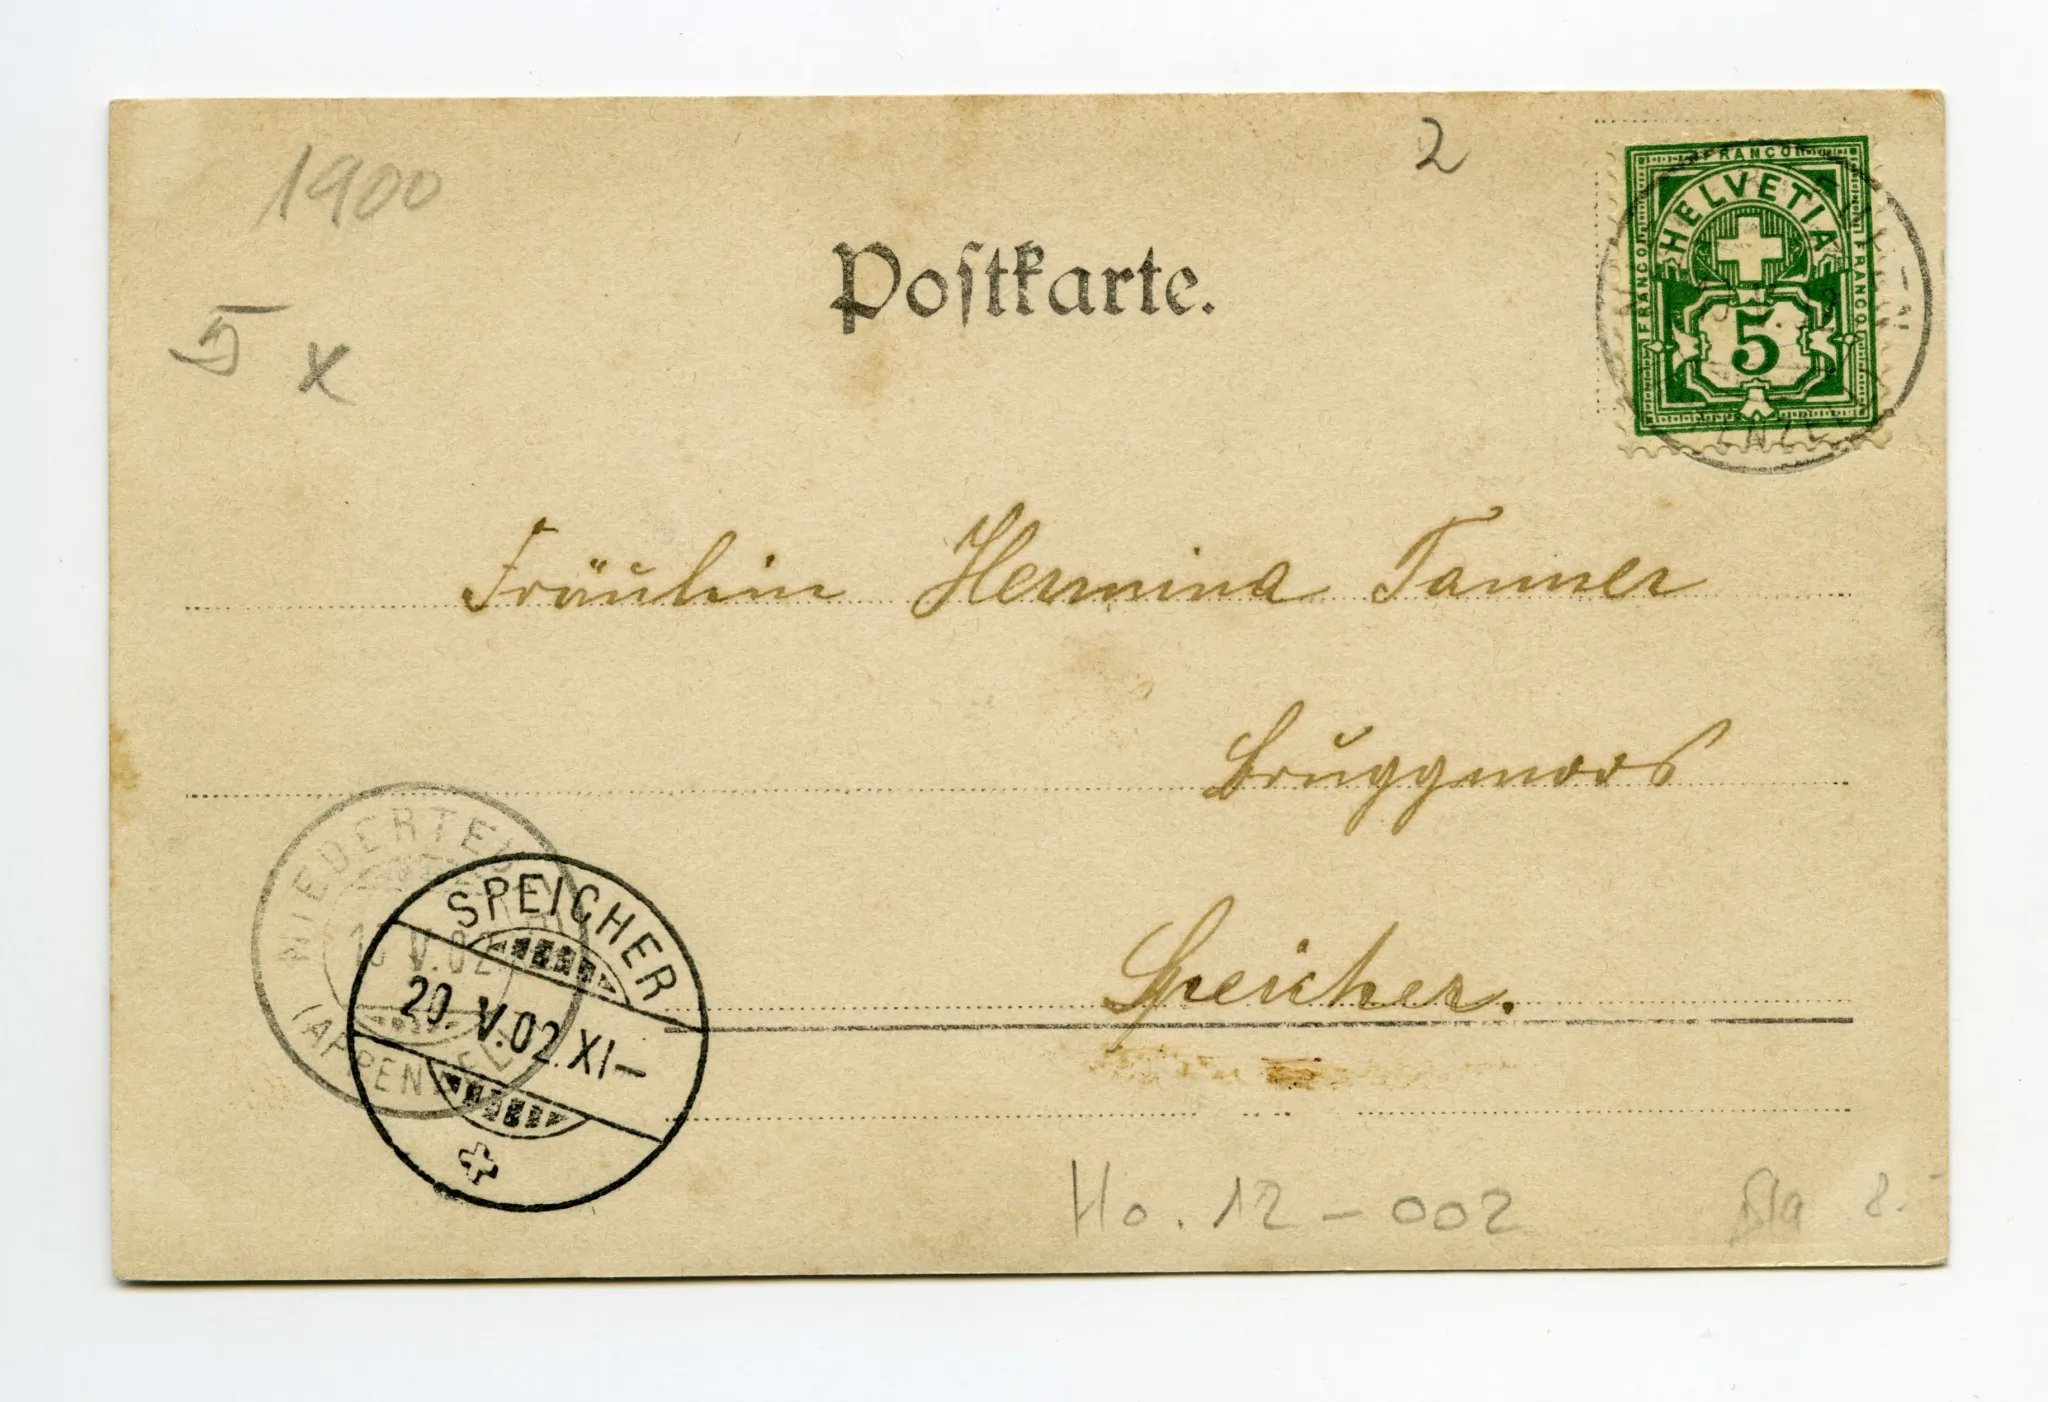 1900
2
5 x
Postkarte.
FRANCO
HELVETIA
FRANCO
FRANCO
5
Fräulein Hermina Tanner
Bruggmoos
Speicher.
NIEDERTEU
V.02
(APPENZELL
SPEICHER
20 V.02 XI–
Ho. 12 – 002
8.–